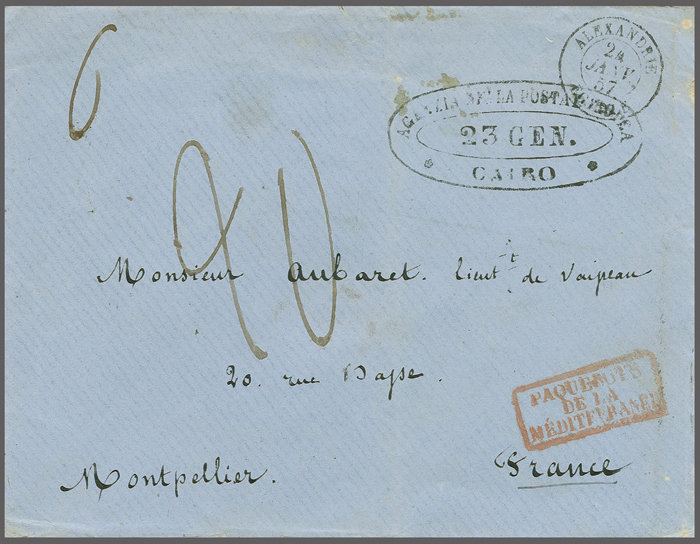 6
ALEXANDRIE
24
JANV.
57
AGENZIA DELLA POSTA EUROPEA
23 GEN.
CAIRO
90
Monsieur Aubaret. Lieut.t de Vaisseau
20. rue Basse.
PAQUEBOTS
DE LA
MÉDITERRANÉE
Montpellier.
France